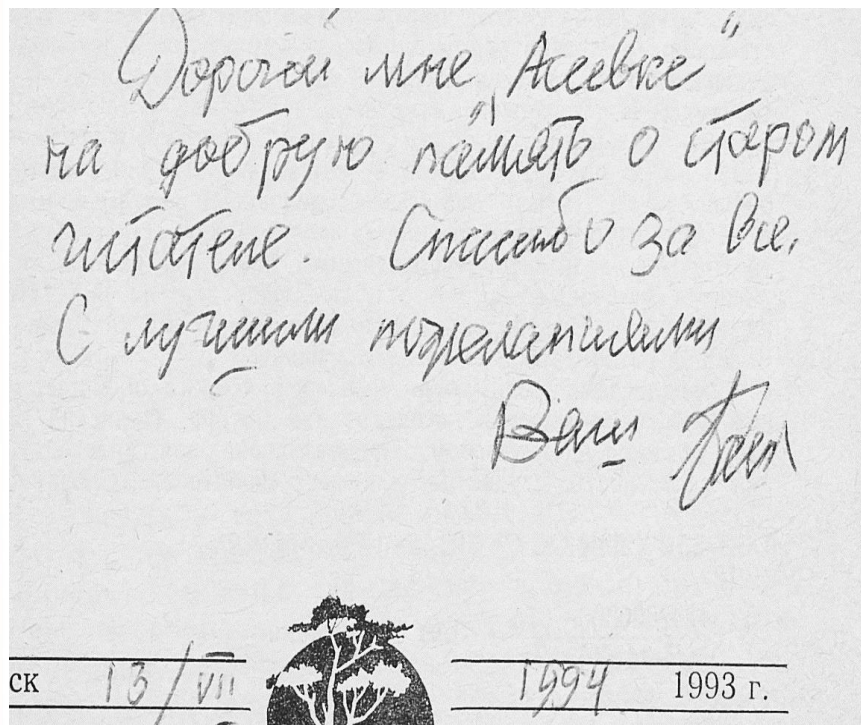 Дорогой мне „Асеевке"
на добрую память о старом
читателе. Спасибо за все.
С лучшими пожеланиями
Ваш
ск 13/VII 1994 1993 г.